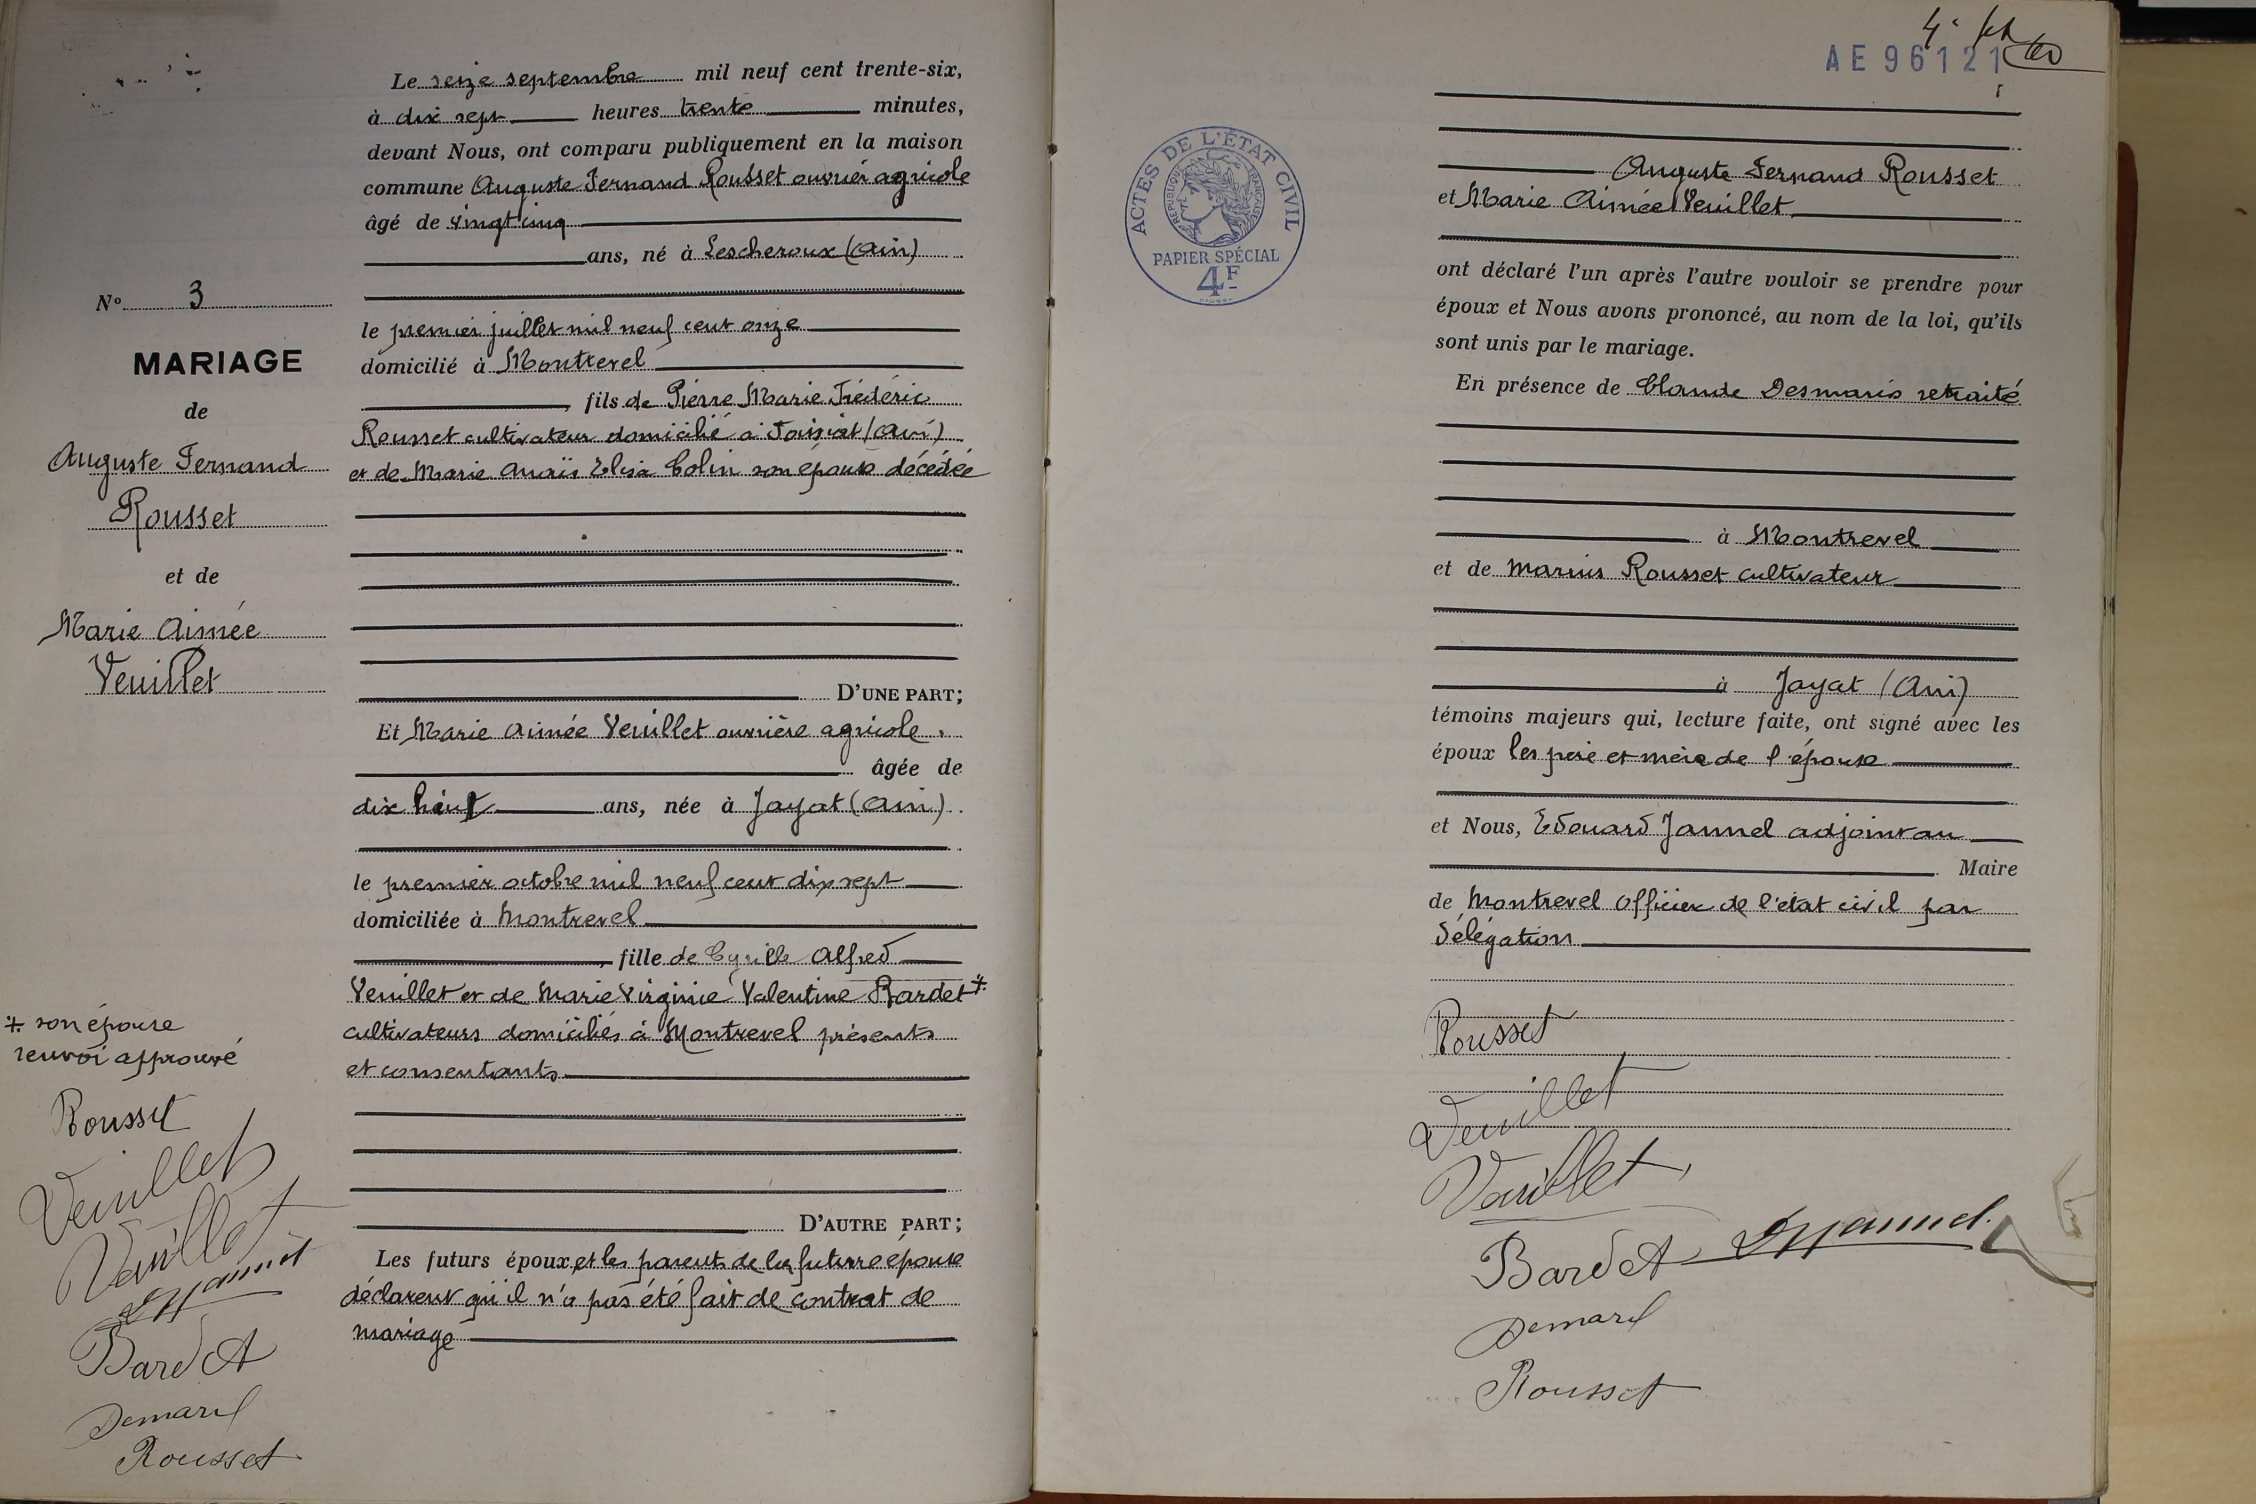 Le seize septembre mil neuf cent trente-six,
à dix sept heures trente minutes,
devant Nous, ont comparu publiquement en la maison
commune Auguste Fernand Rousset ouvrier agricole
âgé de vingt cinq
ans, né à Lescheroux (Ain)
le premier juillet mil neuf cent onze
domicilié à Montrevel
fils de Pierre Marie Frédéric
Rousset cultivateur domicilié à (Ain)
et de Marie Anaïs Elisa Colin son épouse décédée
D'UNE PART;
Et Marie Aimée Veuillet ouvrière agricole
âgée de
dix huit ans, née à Jayat (Ain)
le premier octobre mil neuf cent dix sept
domiciliée à Montrevel
fille de Cyrille Alfred
Veuillet et de Marie Virginie Valentine Bardet +
cultivateurs domiciliés à Montrevel présents
et consentants
D'AUTRE PART;
Les futurs époux et les parents de la future épouse
déclarent qu'il n'a pas été fait de contrat de
mariage
Nº 3
MARIAGE
de
Auguste Fernand
Rousset
et de
Marie Aimée
Veuillet
+ son épouse
renvoi approuvé
Rousset
Veuillet
Veuillet
Bardet
Rousset
AE96121
ACTES DE L'ÉTAT CIVIL
RÉPUBLIQUE FRANÇAISE
PAPIER SPÉCIAL
4F
Auguste Fernand Rousset
et Marie Aimée Veuillet
ont déclaré l'un après l'autre vouloir se prendre pour
époux et Nous avons prononcé, au nom de la loi, qu'ils
sont unis par le mariage.
En présence de Claude Desmaris retraité
à Montrevel
et de Marius Rousset cultivateur
à Jayat (Ain)
témoins majeurs qui, lecture faite, ont signé avec les
époux les père et mère de l'épouse
et Nous, Edouard Jannel adjoint au
Maire
de Montrevel officier de l'état civil par
délégation
Rousset
Veuillet
Veuillet
Bardet
Rousset